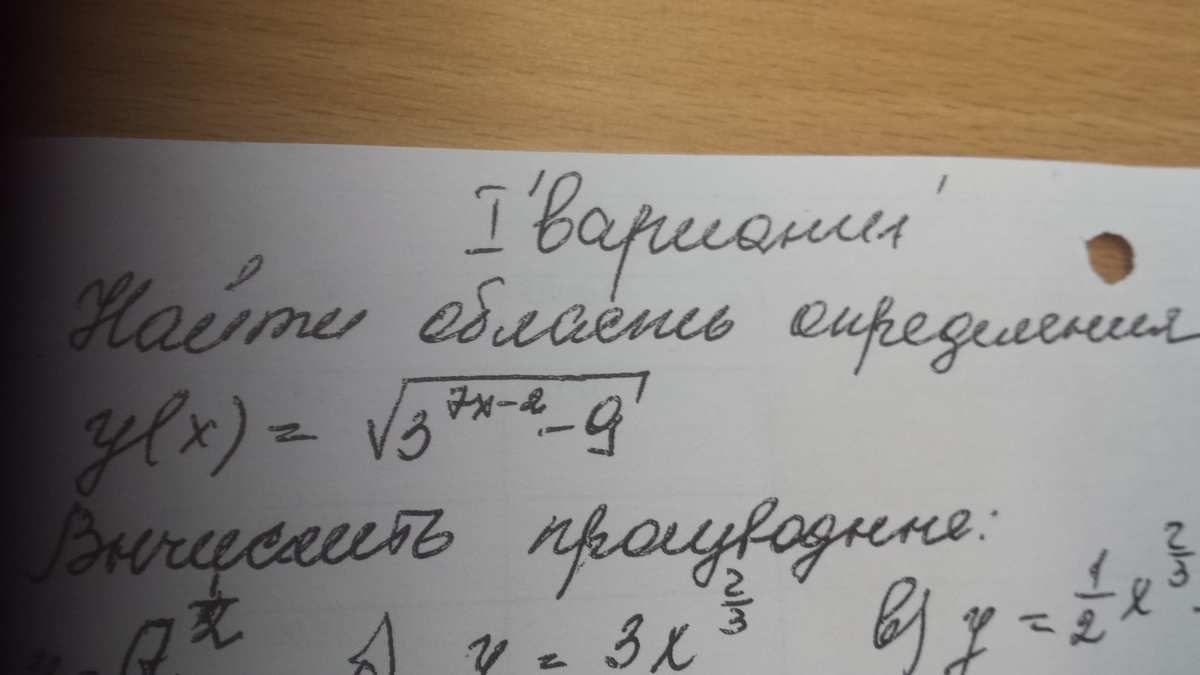 I вариант
Найти область определения
y(x) = √(3^(7x-2) - 9)
Вычислить производные:
y = 3x^(2/3) в) y = 1/2 x^(2/3)